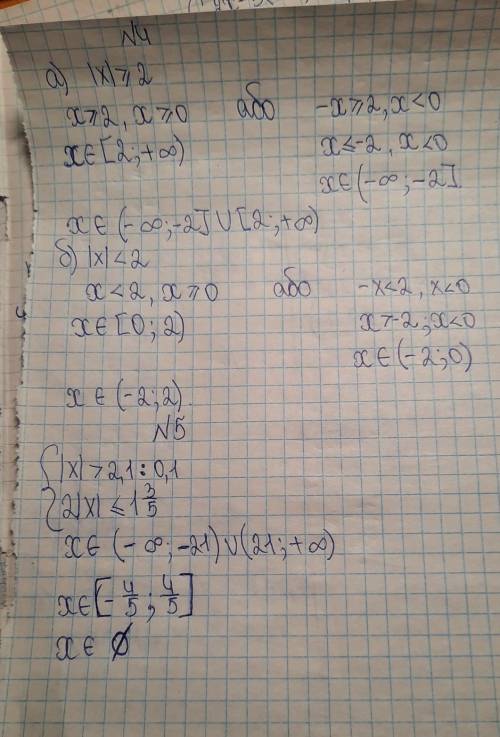 №4
а) |x| ⩾ 2
x ⩾ 2, x ⩾ 0 або -x ⩾ 2, x < 0
x ∈ [2; +∞) x ⩽ -2, x < 0
x ∈ (-∞; -2]
x ∈ (-∞; -2] ∪ [2; +∞)
б) |x| < 2
x < 2, x ⩾ 0 або -x < 2, x < 0
x ∈ [0; 2) x > -2; x < 0
x ∈ (-2; 0)
x ∈ (-2; 2).
№5
{ |x| > 2,1 : 0,1
{ 2|x| ⩽ 1 3/5
x ∈ (-∞; -21) ∪ (21; +∞)
x ∈ [-4/5; 4/5]
x ∈ ∅